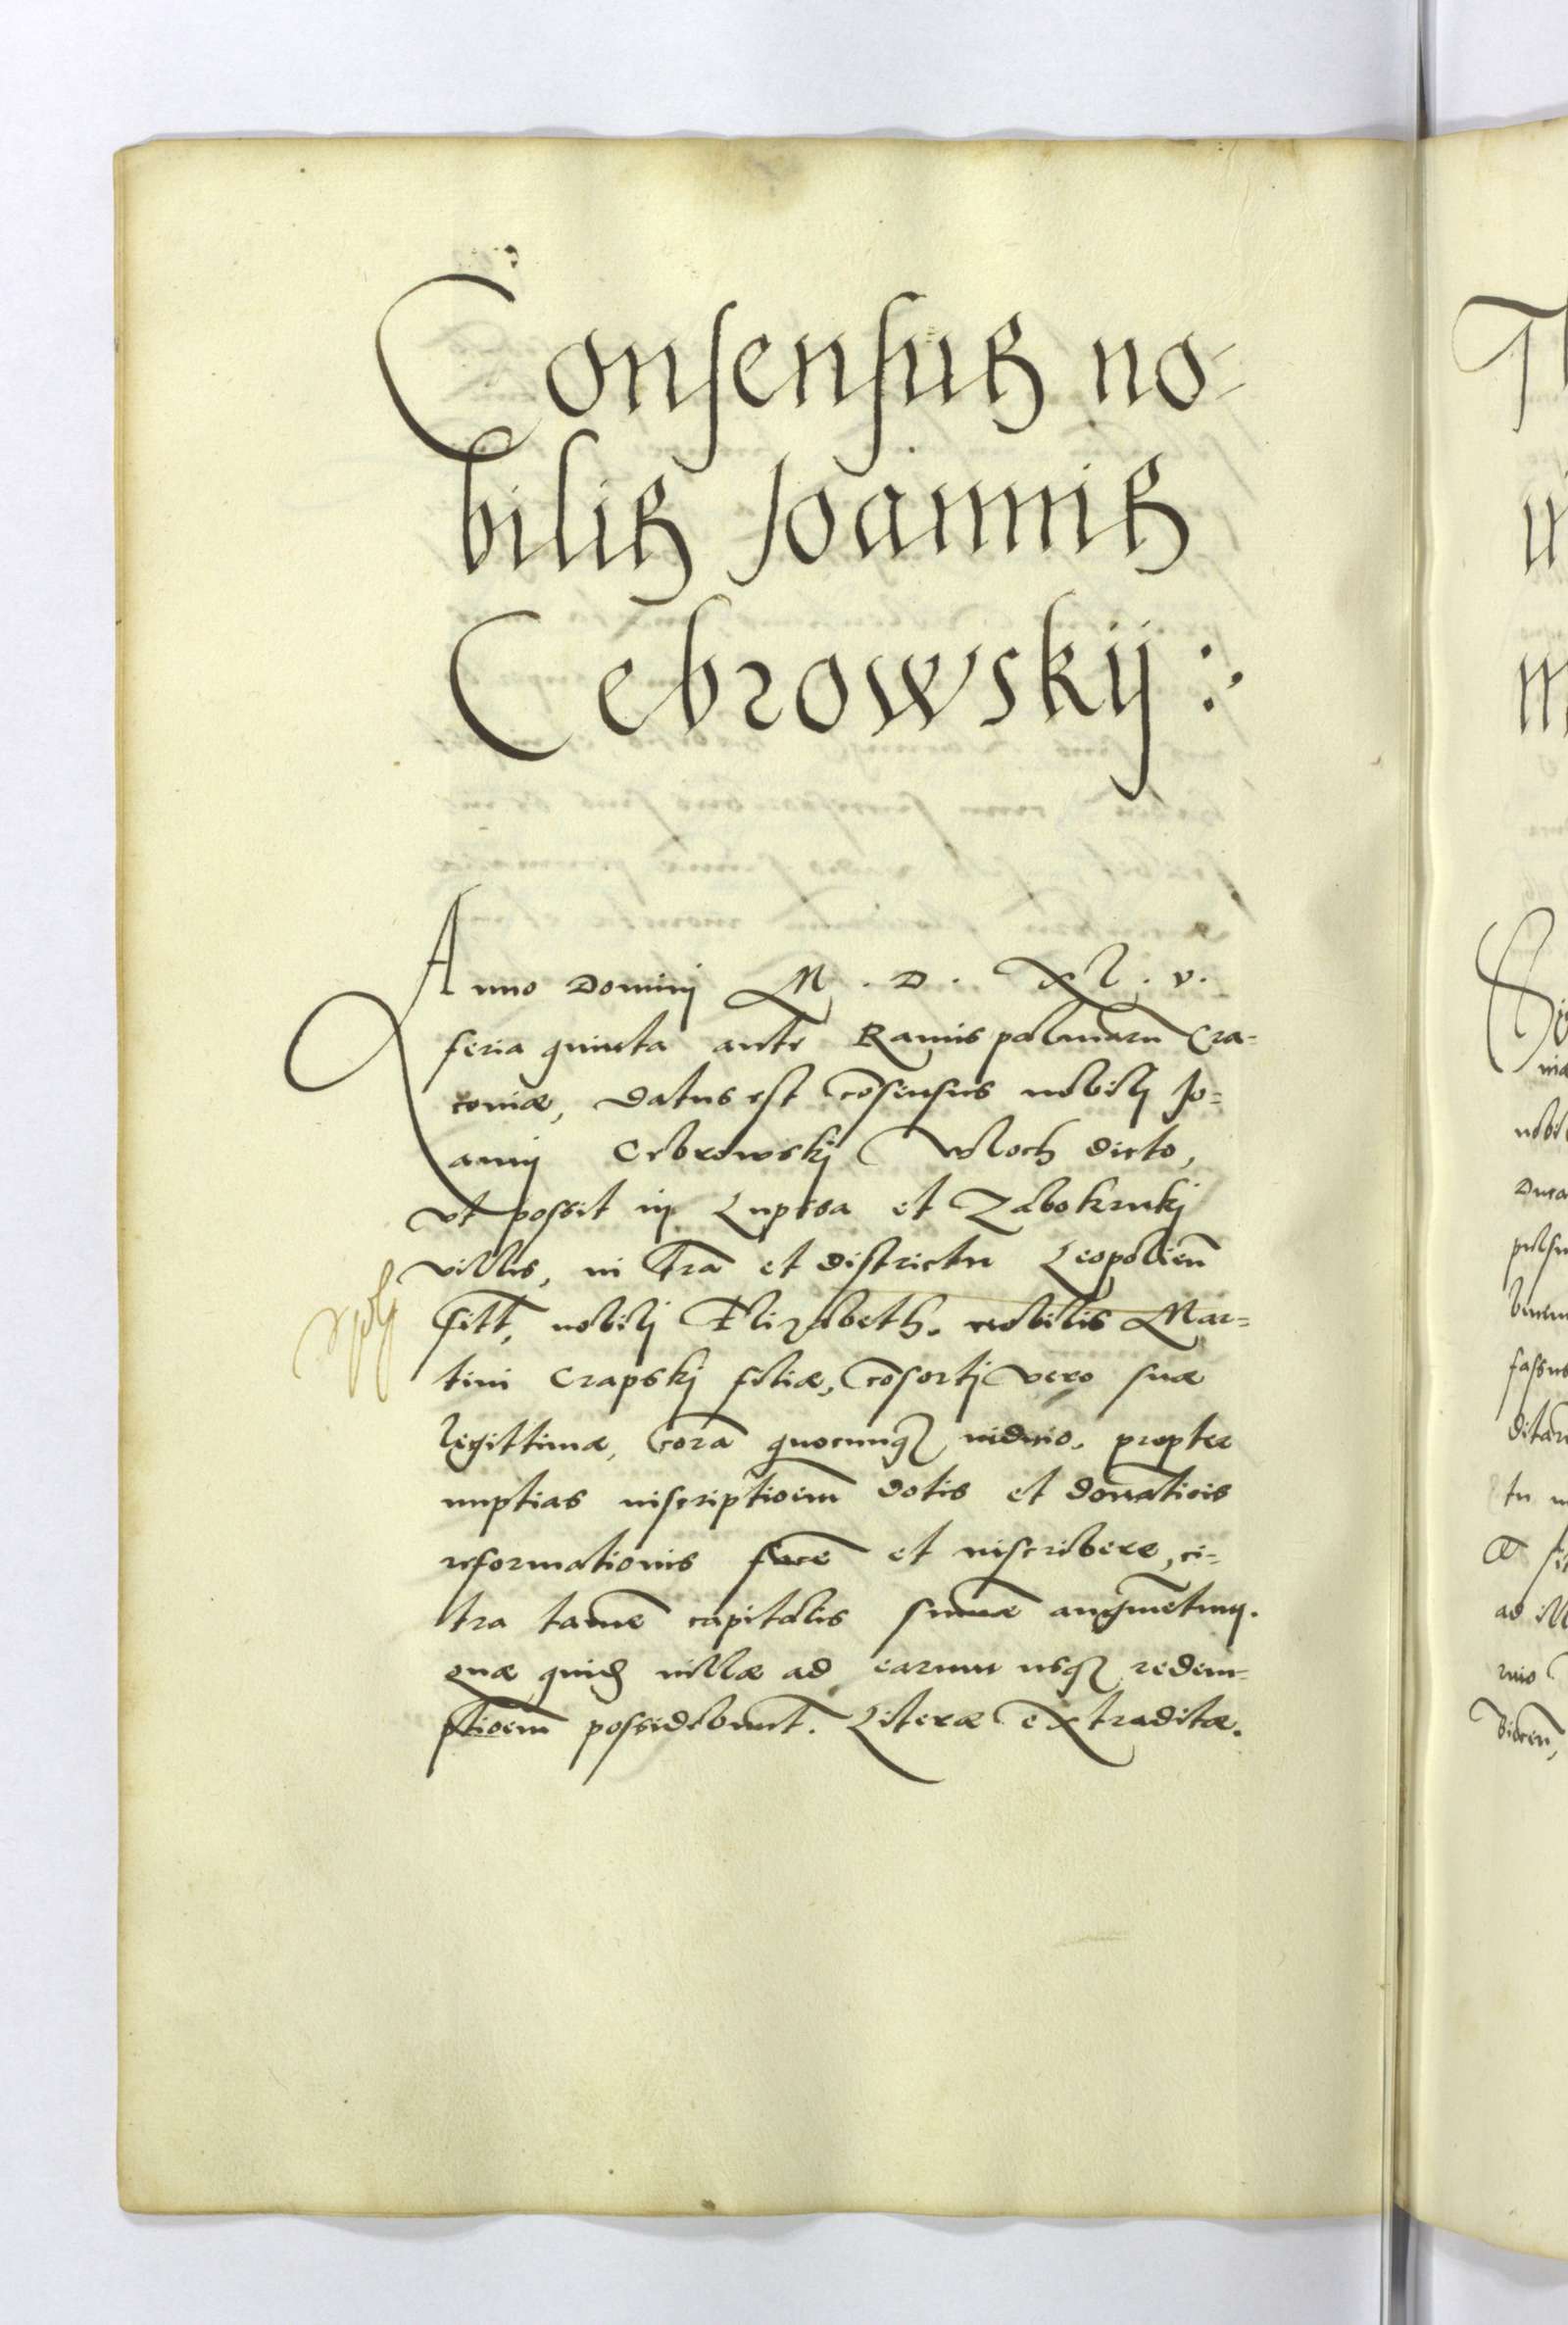 Consensus no-
bilis Joannis
Cebrowskij :
Anno Dominj M . D . Xl . v .
feria quinta ante Ramis palmarũ Cra-
coviæ, datus est cõsensus nobilj Jo-
annj Cebrowskj Wloch dicto,
vt possit in Lupisa et Zabokrukj
villis, in Trã et districtu Leopolieñ
sitt, nobilj Elizabeth, nobilis Mar-
tini Crapskj filiæ, cõsortj vero suæ
legittimæ, corã quocunqȝ iudicio, propter
nuptias inscriptioem dotis et donatiõis
reformationis facẽ et inscribere, ci-
tra tamẽ capitalis sum̃æ augmẽtum.
quæ quidẽ villæ ad earum usqȝ redem-
ptioem possidebunt. Literæ extraditæ.